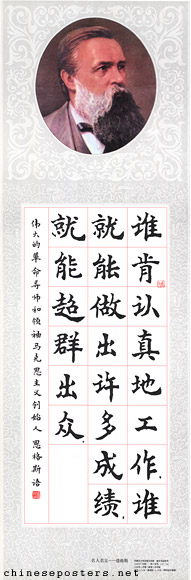 谁肯认真地工作，谁
就能做出许多成绩，
就能超群出众。
伟大的革命导师和领袖马克思主义创始人 恩格斯语
名人名言——恩格斯
chineseposters.net